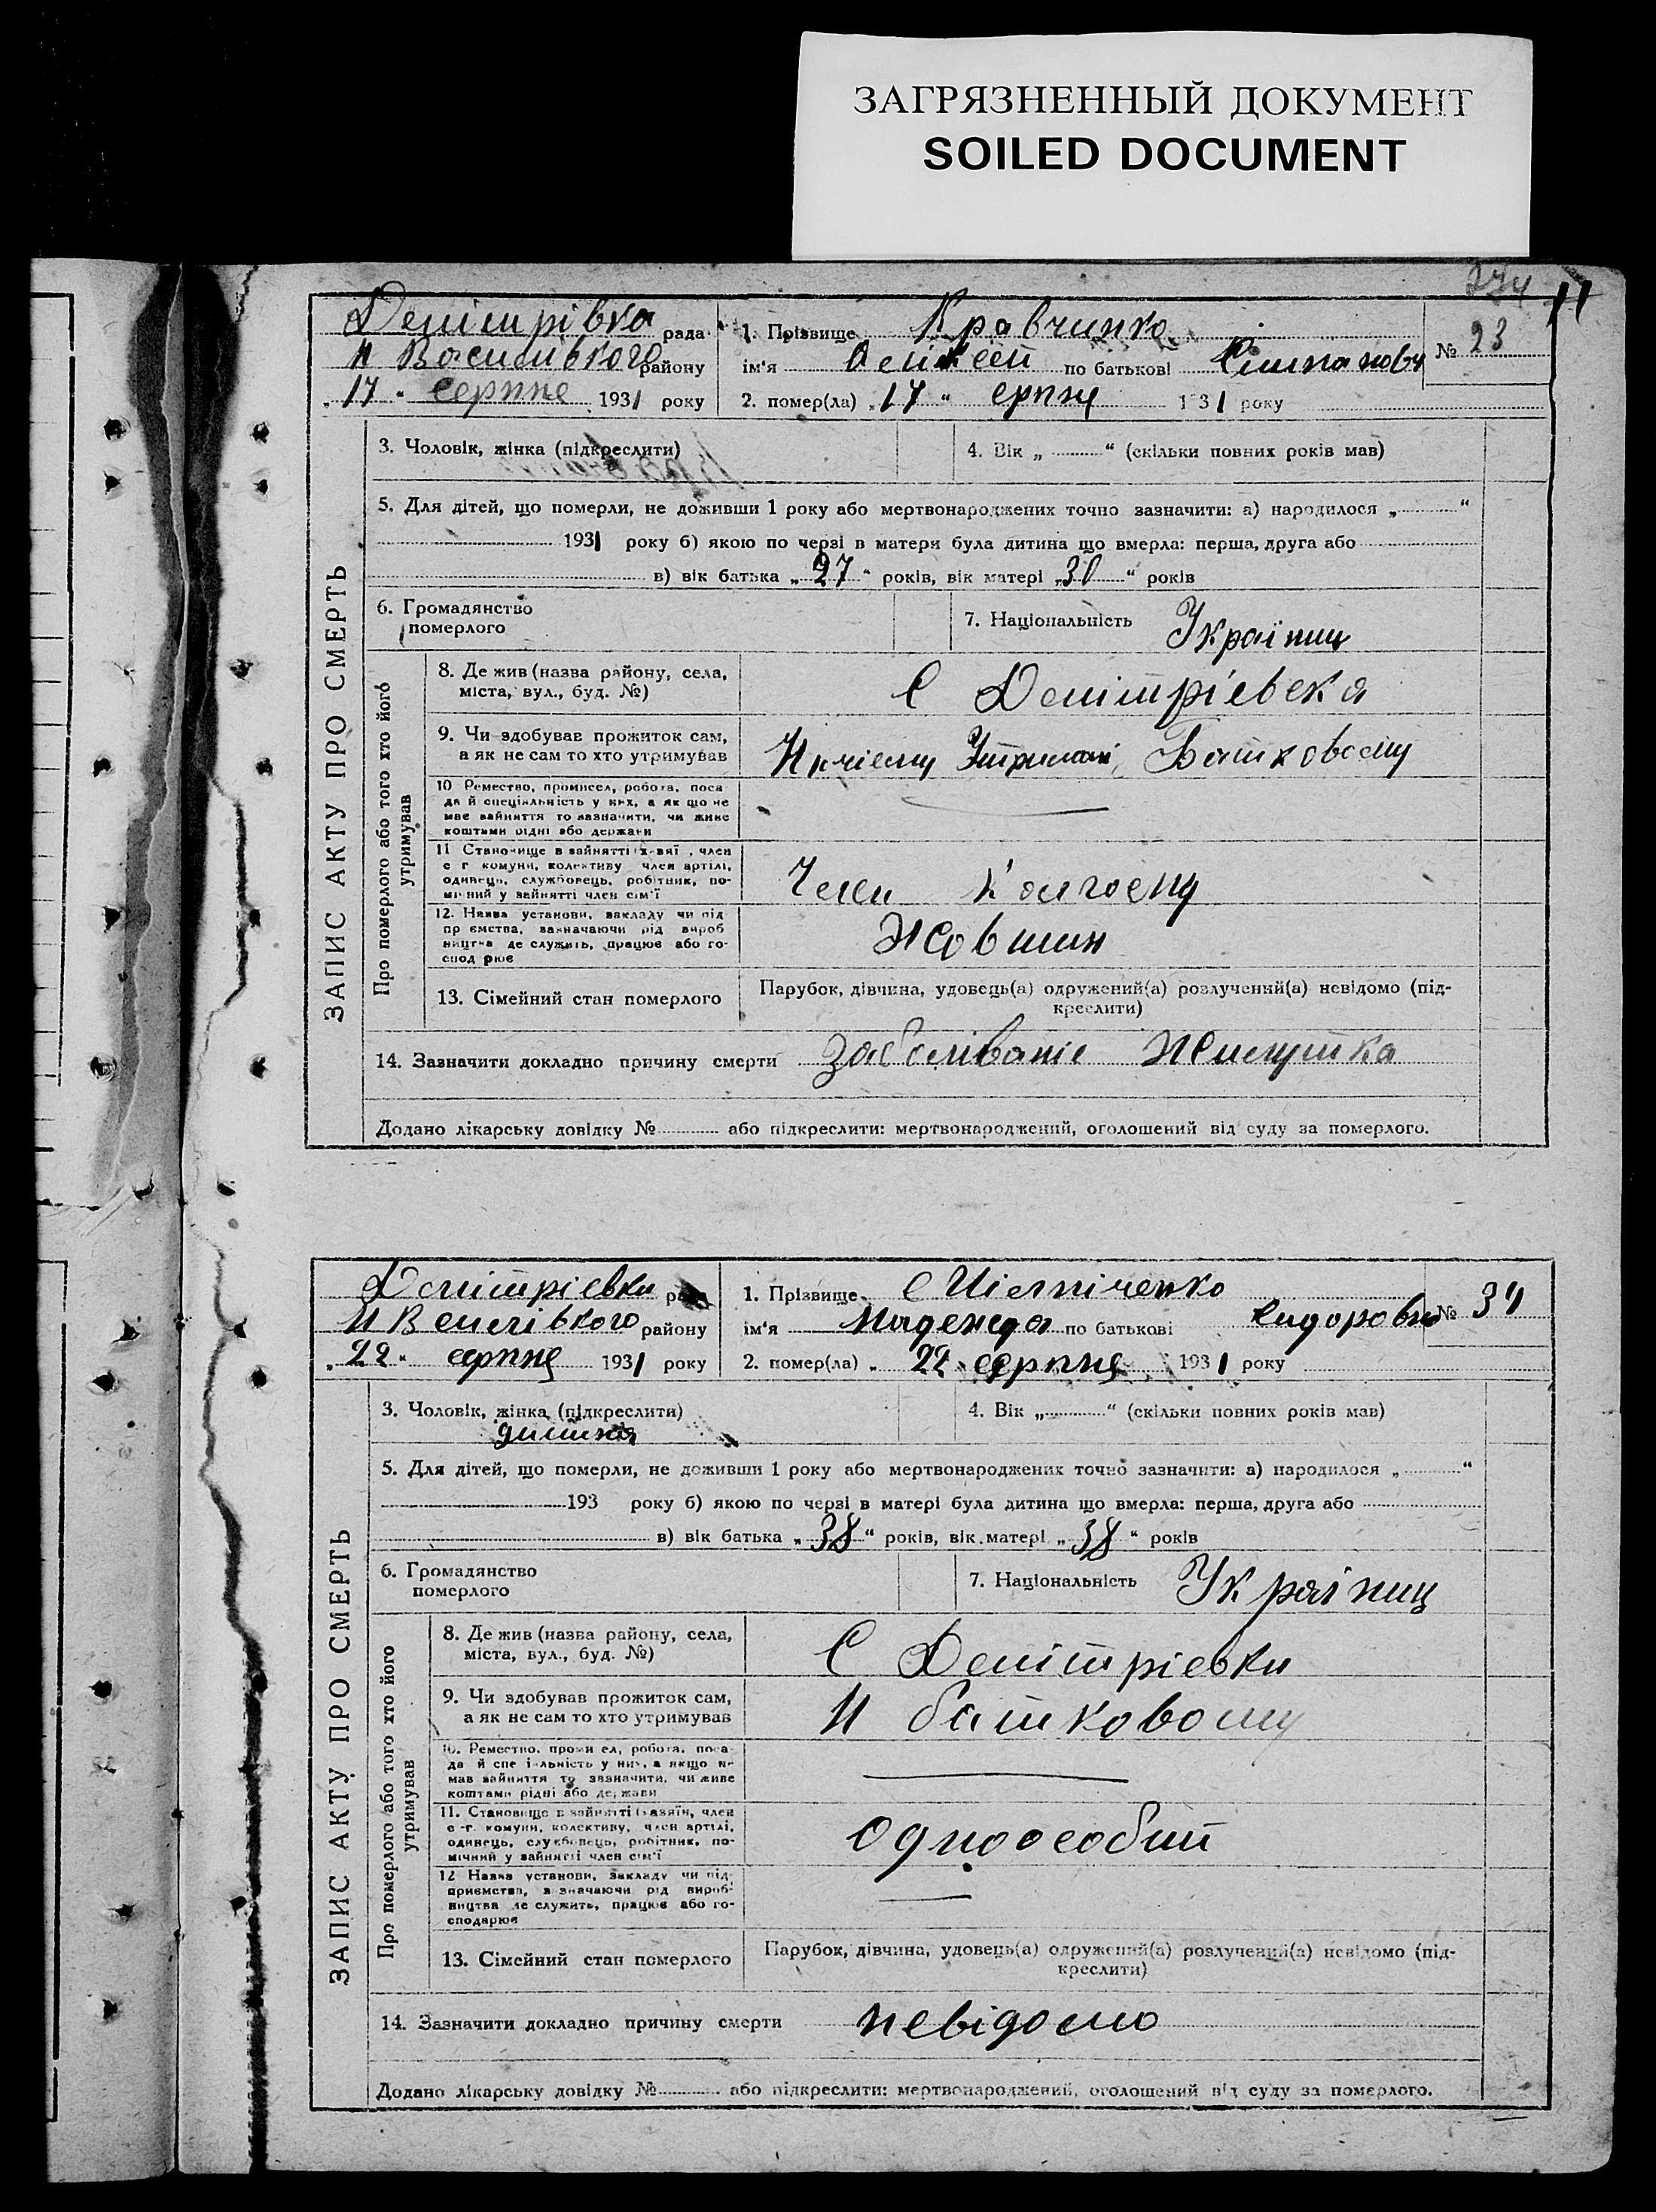 ЗАГРЯЗНЕННЫЙ ДОКУМЕНТ
SOILED DOCUMENT
274
рада 1. Прізвище Кравчинко № 23
району ім'я по батькові
„17“ серпне 1931 року 2. помер(ла) „17“ 1931 року
ЗАПИС АКТУ ПРО СМЕРТЬ
3. Чоловік, жінка (підкреслити) 4. Вік „ “ (скільки повних років мав)
5. Для дітей, що померли, не доживши 1 року або мертвонароджених точно зазначити: а) народилося „ “
1931 року б) якою по черзі в матери була дитина що вмерла: перша, друга або
в) вік батька „27“ років, вік матері „30“ років
6. Громадянство
померлого
7. Національність Україниц
Про померлого або того хто його
утримував
8. Де жив (назва району, села,
міста, вул., буд. №)
С Демітріевска
9. Чи здобував прожиток сам,
а як не сам то хто утримував
Батковому
10 Ремество, промисел, робота, поса-
да й спеціяльність у них, а як що не
має зайняття то зазначити, чи живе
коштами рідні або держави
11 Становище в зайнятті (х-зяї , член
с г комуни, колективу член артілі,
одинець, службовець, робітник, по-
мічний у зайнятті член сім'ї
Член Колгоспу
12. Назва установи, закладу чи під
пр ємства, зазначаючи рід вироб
ництва де служить, працює або го-
спод рює
Жовтин
13. Сімейний стан померлого
Парубок, дівчина, удовець(а) одружений(а) розлучений(а) невідомо (під-
креслити)
14. Зазначити докладно причину смерти Заболіваніе
Додано лікарську довідку № або підкреслити: мертвонароджений, оголошений від суду за померлого.
Демітріевки рада 1. Прізвище № 34
району ім'я Надежда по батькові Сидоровн
„22“ серпня 1931 року 2. помер(ла) „22“ серпня 1931 року
ЗАПИС АКТУ ПРО СМЕРТЬ
3. Чоловік, жінка (підкреслити) 4. Вік „ “ (скільки повних років мав)
5. Для дітей, що померли, не доживши 1 року або мертвонароджених точно зазначити: а) народилося „ “
193 року б) якою по черзі в матері була дитина що вмерла: перша, друга або
в) вік батька „38“ років, вік матері „38“ років
6. Громадянство
померлого
7. Національність Україниц
Про померлого або того хто його
утримував
8. Де жив (назва району, села,
міста, вул., буд. №)
С Демітріевки
9. Чи здобував прожиток сам,
а як не сам то хто утримував
Н батковому
10. Ремество, промисел, робота, поса-
да й спеціяльність у них, а якщо не
мав зайняття то зазначити, чи живе
коштами рідні або держави
11. Становище в зайнятті (хазяїн, член
с-г. комуни, колективу, член артілі,
одинець, службовець, робітник, по-
мічний у зайнятті член сім'ї
Одноособий
12 Назва установи, закладу чи під-
приємства, зазначаючи рід вироб-
ництва де служить, працює або го-
сподарює
13. Сімейний стан померлого
Парубок, дівчина, удовець(а) одружений(а) розлучений(а) невідомо (під-
креслити)
14. Зазначити докладно причину смерти невідомо
Додано лікарську довідку № або підкреслити: мертвонароджений, оголошений від суду за померлого.